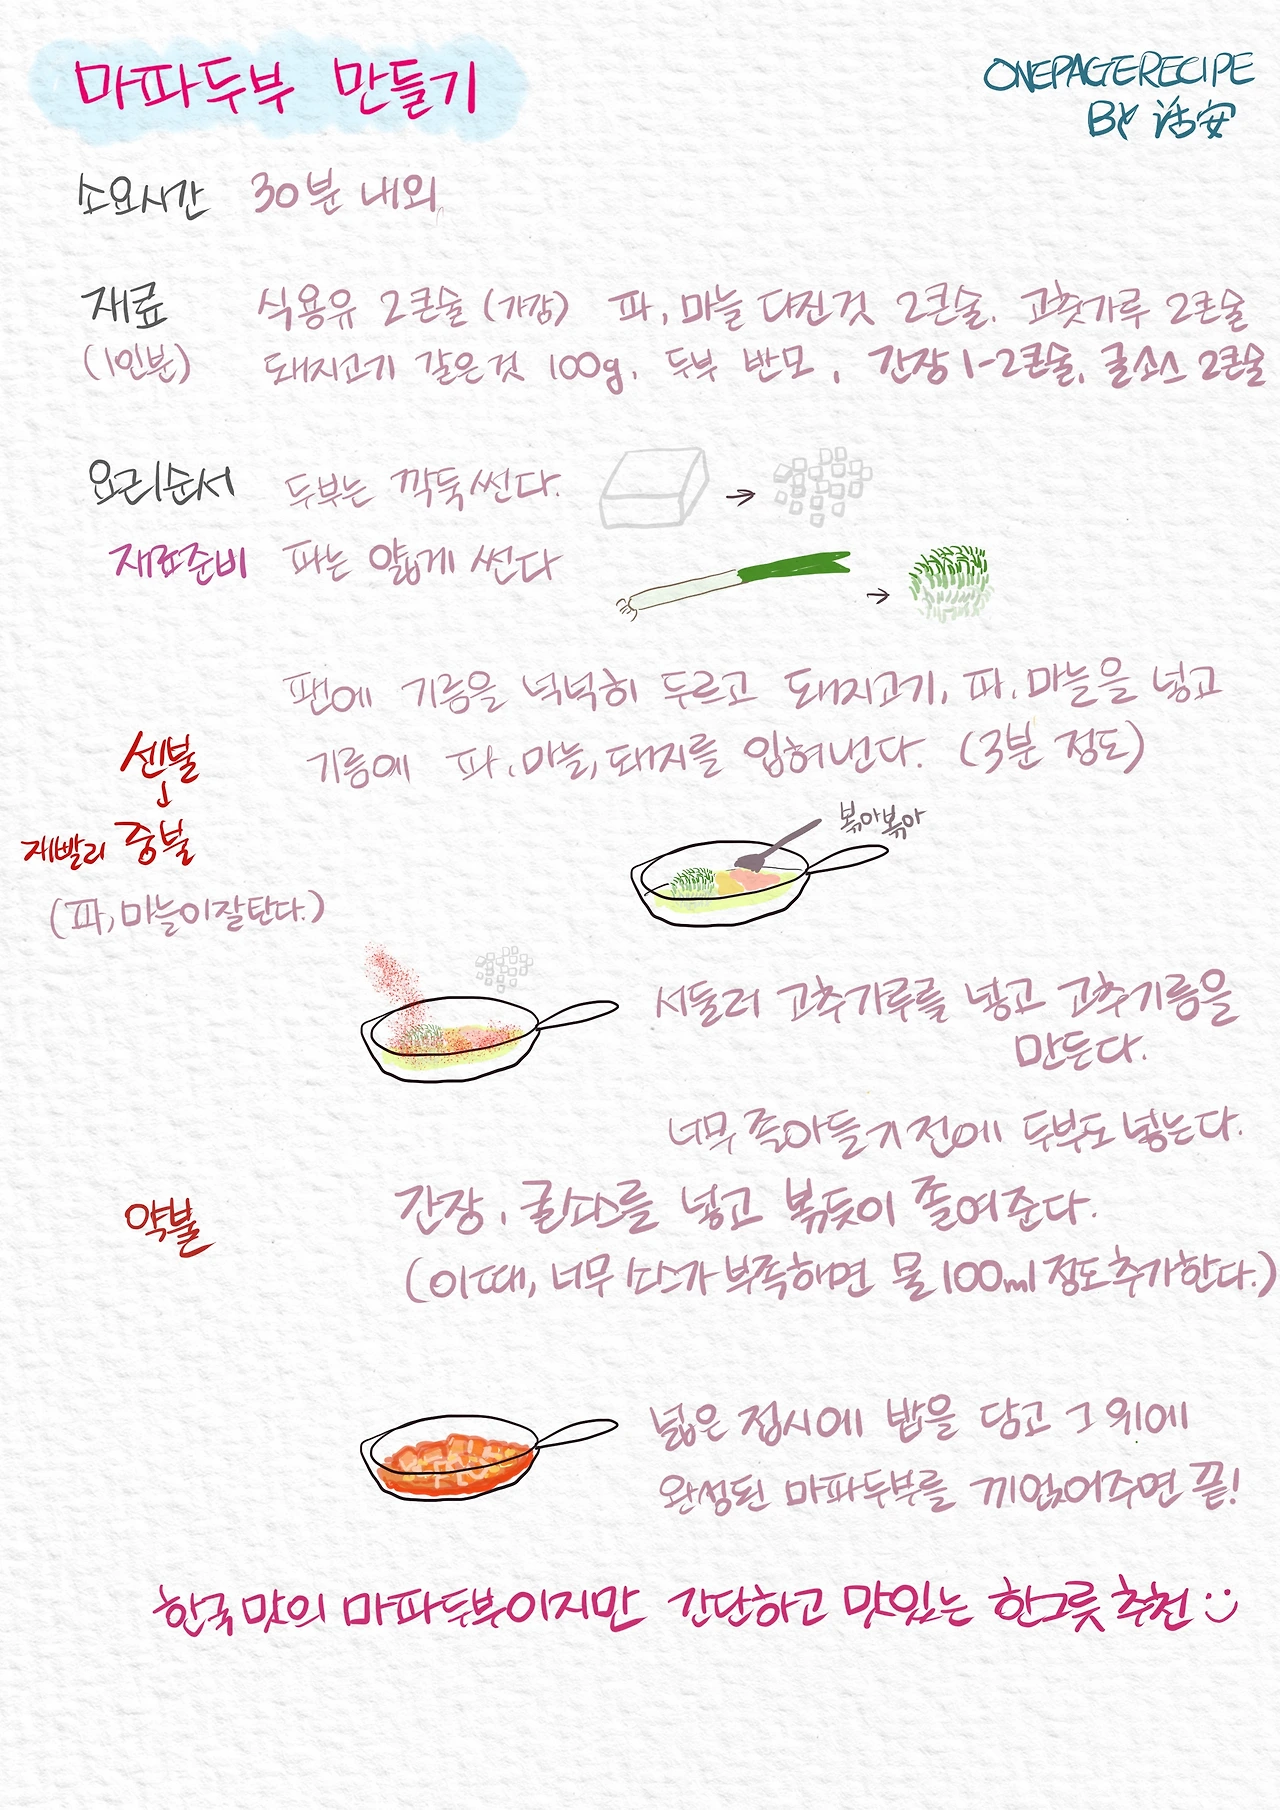 마파두부 만들기
ONEPAGERECIPE
BY 活安
소요시간 30분 내외
재료 식용유 2큰술 (가강) 파, 마늘 다진것 2큰술. 고춧가루 2큰술
(1인분) 돼지고기 갈은것 100g, 두부 반모, 간장 1-2큰술, 굴소스 2큰술
요리순서 두부는 깍둑썬다.
재료준비 파는 얇게 썬다
팬에 기름을 넉넉히 두르고 돼지고기, 파, 마늘을 넣고
센불 기름에 파, 마늘, 돼지를 입혀낸다. (3분 정도)
↓
재빨리 중불
볶아볶아
(파, 마늘이 잘탄다.)
서둘러 고추가루를 넣고 고추기름을
만든다.
너무 졸아들기 전에 두부도 넣는다.
약불 간장, 굴소스를 넣고 볶듯이 졸여준다.
(이때, 너무 소스가 부족하면 물 100ml 정도 추가한다.)
넓은 접시에 밥을 담고 그 위에
완성된 마파두부를 끼얹어주면 끝!
한국 맛의 마파두부이지만 간단하고 맛있는 한그릇 추천 :)